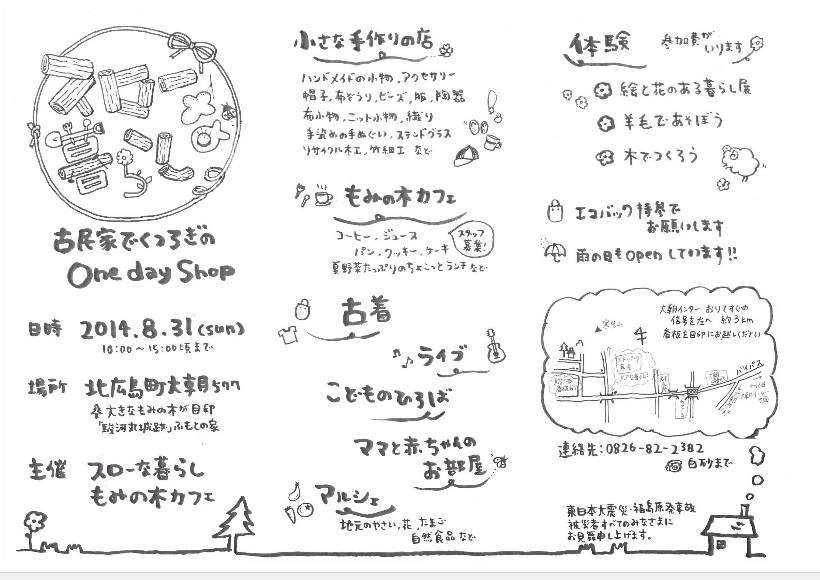 古民家でくつろぎの
One day Shop
日時 2014.8.31(sun)
10:00〜15:00頃まで
場所 北広島町大朝597
大きなもみの木が目印
「駿河丸城跡」ふもとの家
主催 スローな暮らし
もみの木カフェ
小さな手作りの店
ハンドメイドの小物,アクセサリー
帽子,布ぞうり,ビーズ,服,陶器
布小物,ニット小物,織り
手染めの手ぬぐい,ステンドグラス
リサイクル木工,竹細工 など
もみの木カフェ
コーヒー,ジュース
パン,クッキー,ケーキ
スタッフ
募集!
夏野菜たっぷりのちょこっとランチ など
古着
ライブ
こどものひろば
ママと赤ちゃんの
お部屋
マルシェ
地元のやさい,花,たまご
自然食品 など
体験 参加費が
いります
絵と花のある暮らし展
羊毛であそぼう
木でつくろう
エコバック持参で
お願いします
雨の日もOpenしています!!
大朝インターおりてすぐの
信号を左へ 約3km
看板を目印にお越しください
バイパス
連絡先:0826-82-2382
白砂まで
東日本大震災・福島原発事故
被災者すべてのみなさまに
お見舞申し上げます。